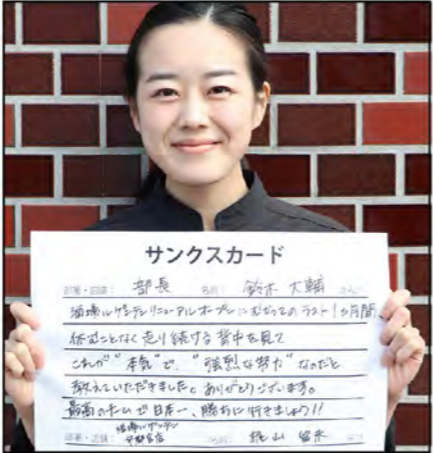 サンクスカード
部署・役職: 部長 名前: 鈴木 大輔 さんへ
酒場ルゲンテンリニューアルオープンにむかってのラスト1ヵ月間
休むことなく走り続ける背中を見て
これが"本気"で、"強烈な努力"なのだと
教えていただきました。ありがとうございます。
最高のチームで日本一、勝ちに行きましょう!!
部署・店舗: 酒場ルゲンテン 名前: 山 留 より